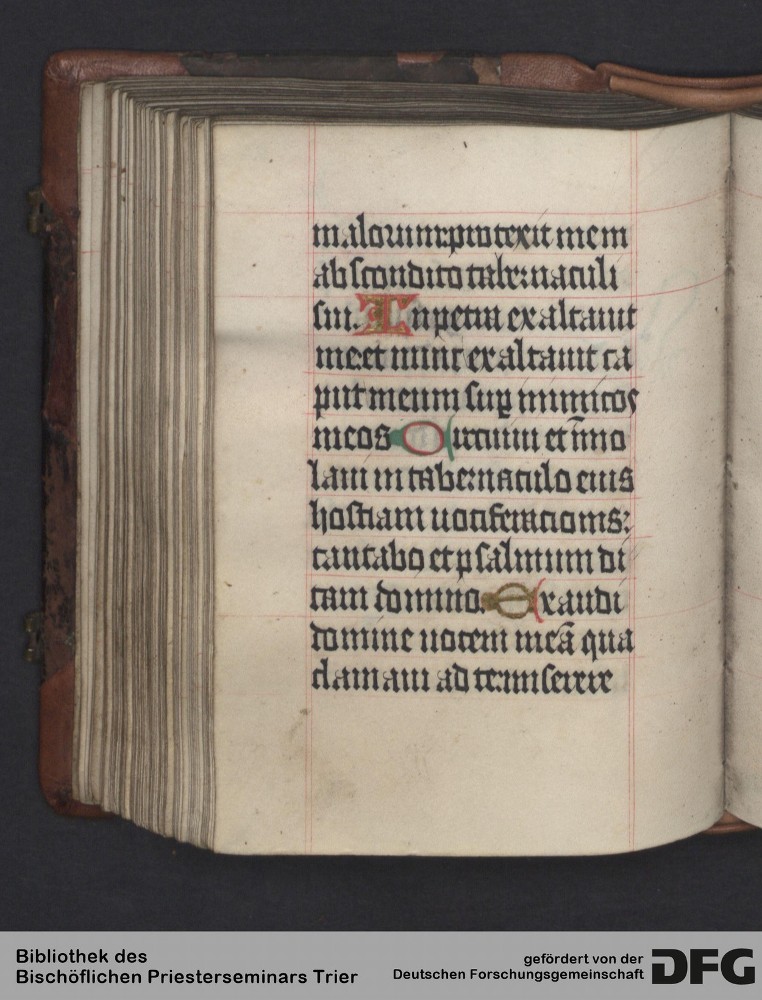 malorum: protexit me in
abscondito tabernaculi
sui. In petra exaltauit
me: et nunc exaltauit ca
put meum sup inimicos
meos Circuiui et īmo
laui in tabernaculo eius
hostiam uociferacionis:
cantabo et psalmum di
cam domino. Exaudi
domine uocem meā qua
clamaui ad te: miserere
Bibliothek des
Bischöflichen Priesterseminars Trier
gefördert von der
Deutschen Forschungsgemeinschaft
DFG